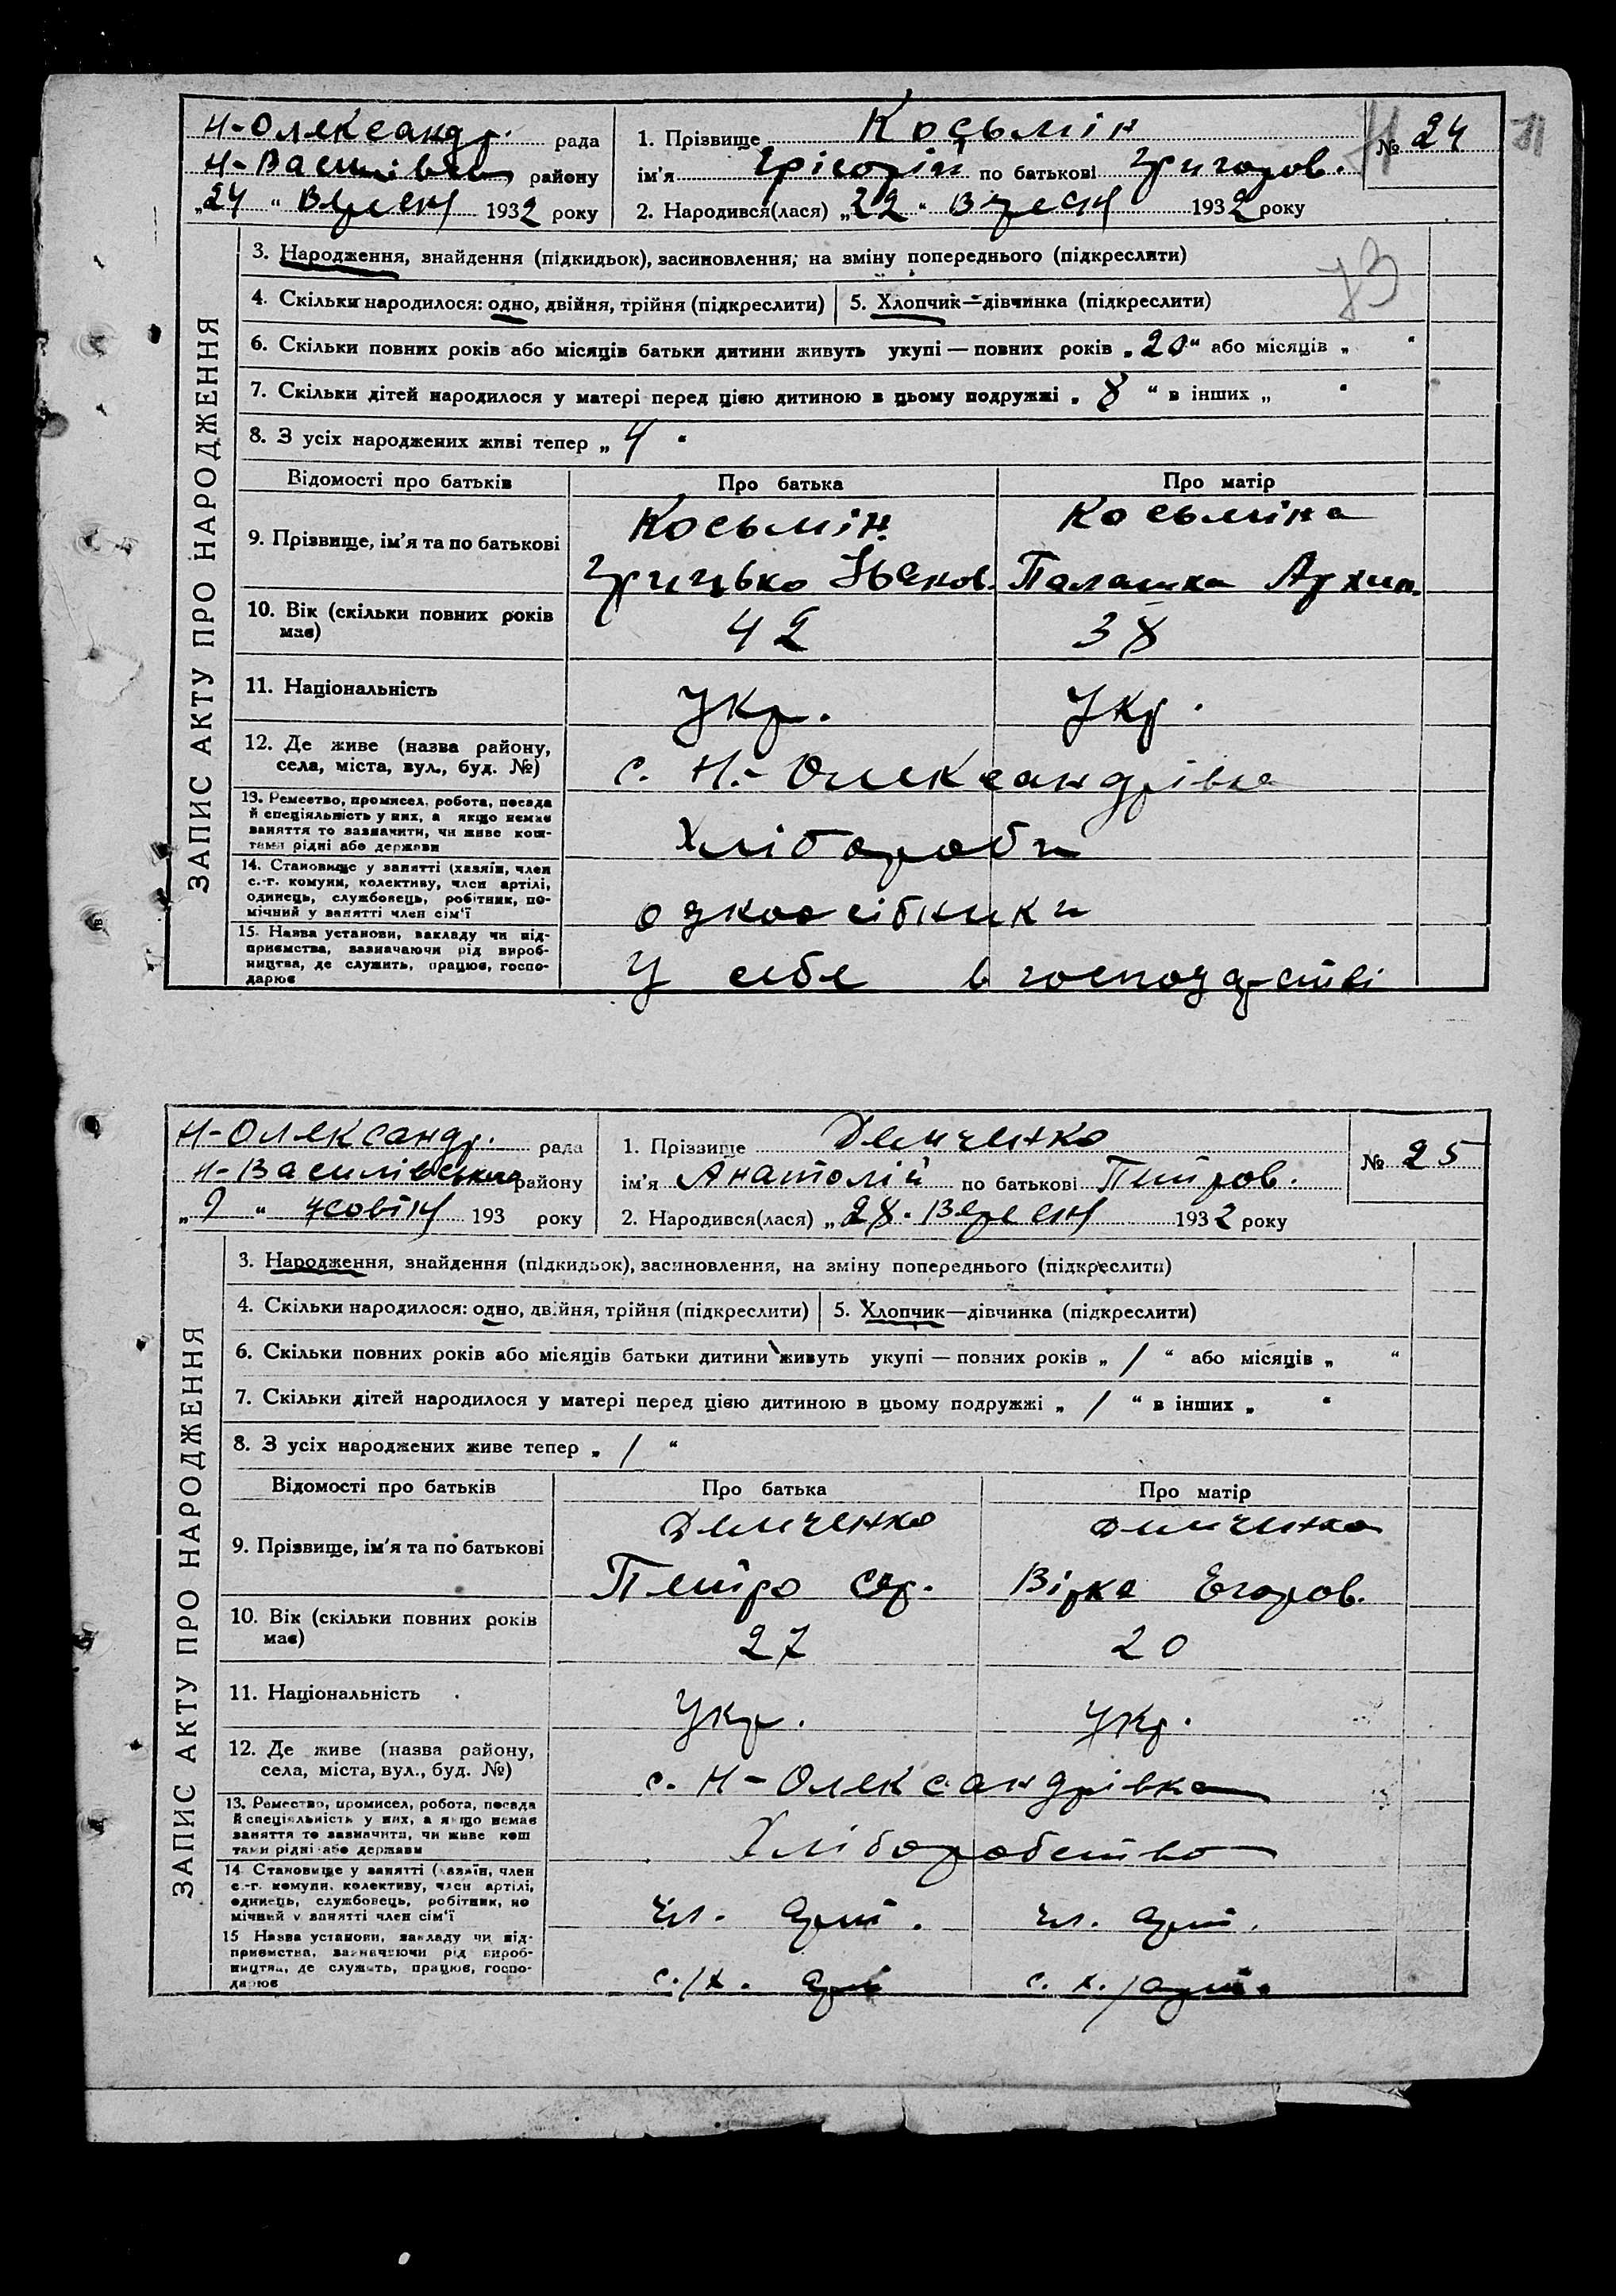 Н-Олександр. рада
Н-Васил району
„24“ Вересня 1932 року
1. Прізвище Косьмін
№ 24
ім'я Грігорій по батькові Григоров.
2. Народився(лася) „22“ Вересн 1932 року
ЗАПИС АКТУ ПРО НАРОДЖЕННЯ
3. Народження, знайдення (підкидьок), засиновлення, на зміну попереднього (підкреслити)
73
4. Скільки народилося: одно, двійня, трійня (підкреслити) 5. Хлопчик—дівчинка (підкреслити)
6. Скільки повних років або місяців батьки дитини живуть укупі — повних років „20“ або місяців „ “
7. Скільки дітей народилося у матері перед цією дитиною в цьому подружжі „8“ в інших „ “
8. З усіх народжених живі тепер „4“
Відомості про батьків Про батька Про матір
9. Прізвище, ім'я та по батькові
Косьмін Косьміна
Грицько Палашка Архип.
10. Вік (скільки повних років має) 42 38
11. Національність Укр. Укр.
12. Де живе (назва району, села, міста, вул., буд. №) с. Н.-Олександрівка
13. Ремество, промисел, робота, посада
й спеціяльність у них, а якщо немає
заняття то зазначити, чи живе кош-
тами рідні або держави
Хлібороби
14. Становище у занятті (хазяїн, член
с.-г. комуни, колективу, член артілі,
одинець, службовець, робітник, по-
мічний у занятті член сім'ї
одноосібники
15. Назва установи, закладу чи під-
приємства, зазначаючи рід вироб-
ництва, де служить, працює, госпо-
дарює
У себе в господарстві
Н-Олександр. рада
Н-Василівського району
„9“ жовтня 193 року
1. Прізвище Демченко
№ 25
ім'я Анатолій по батькові Петров.
2. Народився(лася) „28“ Вересн 1932 року
ЗАПИС АКТУ ПРО НАРОДЖЕННЯ
3. Народження, знайдення (підкидьок), засиновлення, на зміну попереднього (підкреслити)
4. Скільки народилося: одно, двійня, трійня (підкреслити) 5. Хлопчик—дівчинка (підкреслити)
6. Скільки повних років або місяців батьки дитини живуть укупі — повних років „1“ або місяців „ “
7. Скільки дітей народилося у матері перед цією дитиною в цьому подружжі „1“ в інших „ “
8. З усіх народжених живе тепер „1“
Відомості про батьків Про батька Про матір
9. Прізвище, ім'я та по батькові
Демченко Демченко
Петро Сер. Вірка Егоров.
10. Вік (скільки повних років має) 27 20
11. Національність Укр. Укр.
12. Де живе (назва району, села, міста, вул., буд. №) с. Н-Олександрівка
13. Ремество, промисел, робота, посада
й спеціяльність у них, а якщо немає
заняття то зазначити, чи живе кош
тами рідні або держави
Хліборобство
14 Становище у занятті (хазяїн, член
с.-г. комуни, колективу, член артілі,
одинець, службовець, робітник, по
мічний у занятті член сім'ї
чл. арт. чл. арт.
15 Назва установи, закладу чи під-
приємства, зазначаючи рід вироб-
ництва, де служить, працює, госпо-
дарює
с./х. арт с. х./арт.